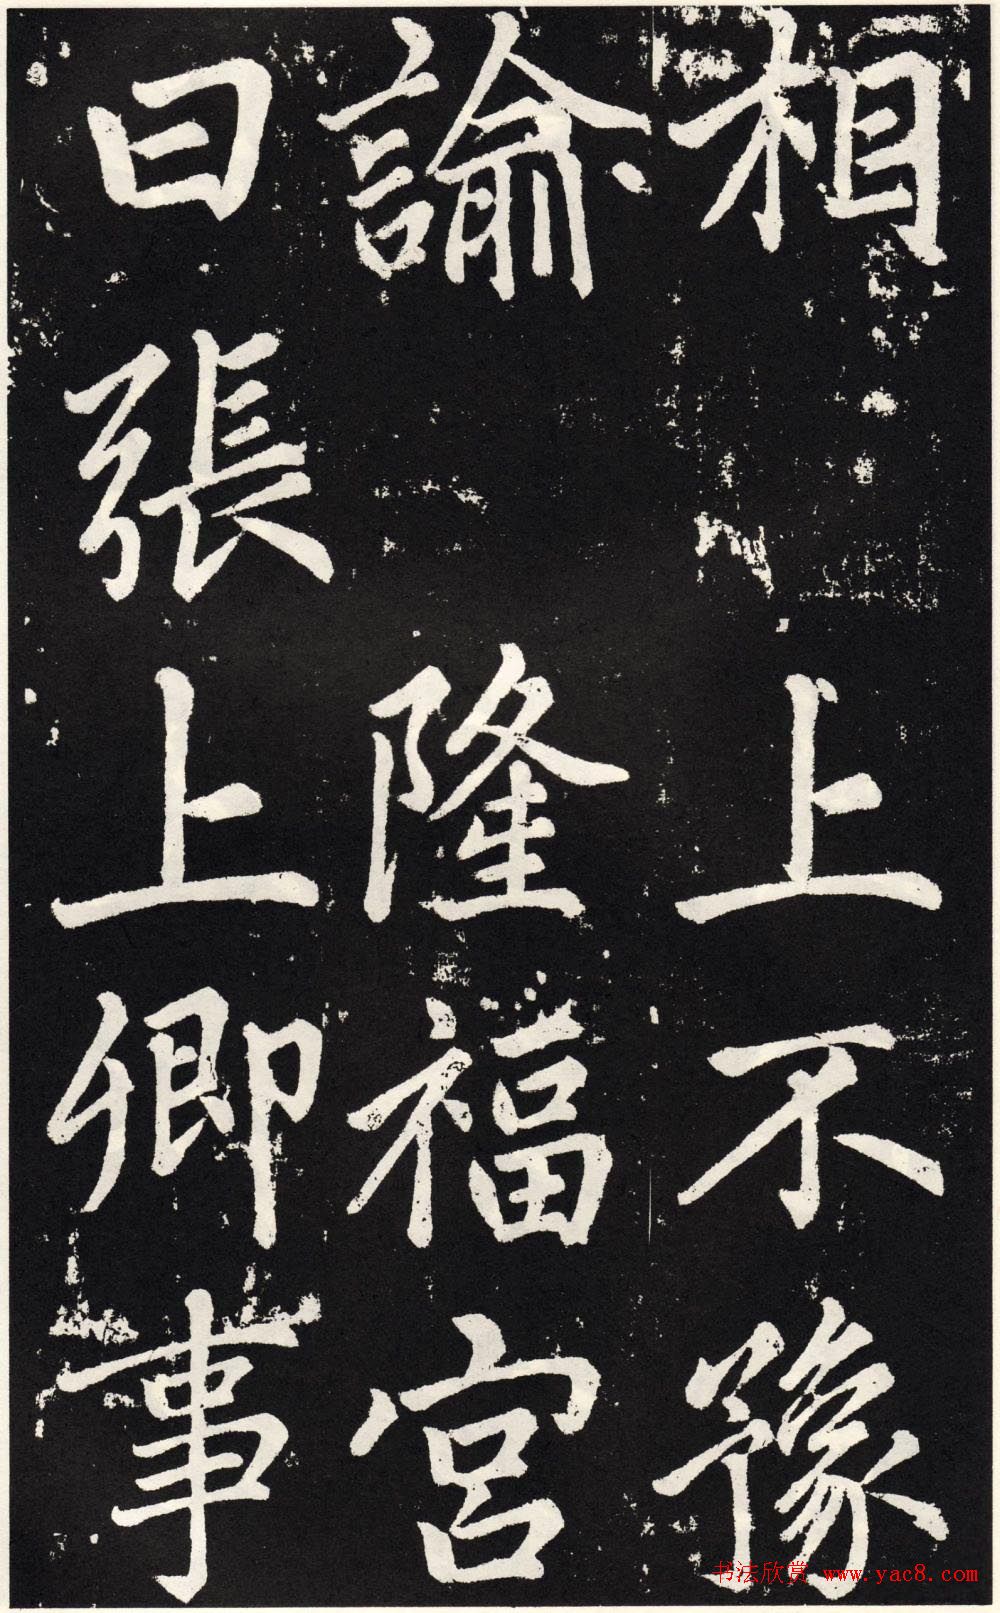 相上不豫
諭隆福宫
曰張上卿事
书法欣赏 www.yac8.com